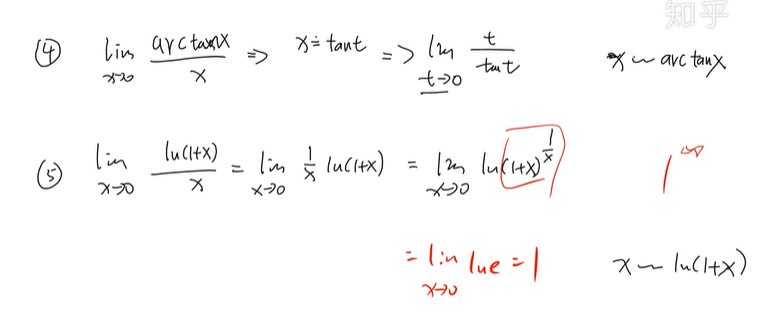 知乎
④ lim x→0 arctanx/x => x=tant => lim t→0 t/tant x~arctanx
⑤ lim x→0 ln(1+x)/x = lim x→0 1/x ln(1+x) = lim x→0 ln(1+x)^(1/x) 1^∞
= lim x→0 lne = 1 x~ln(1+x)